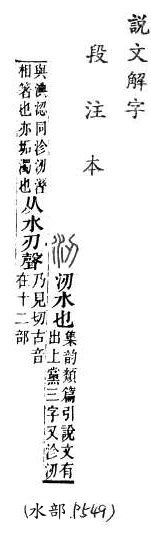 說文解字
段注本
㲽水也
集韵類篇引說文有
出上黨三字又沴㲽
與淟認同沴㲽溼
相著也亦垢濁也
从水刃聲
乃見切古音
在十二部
(水部 P549)